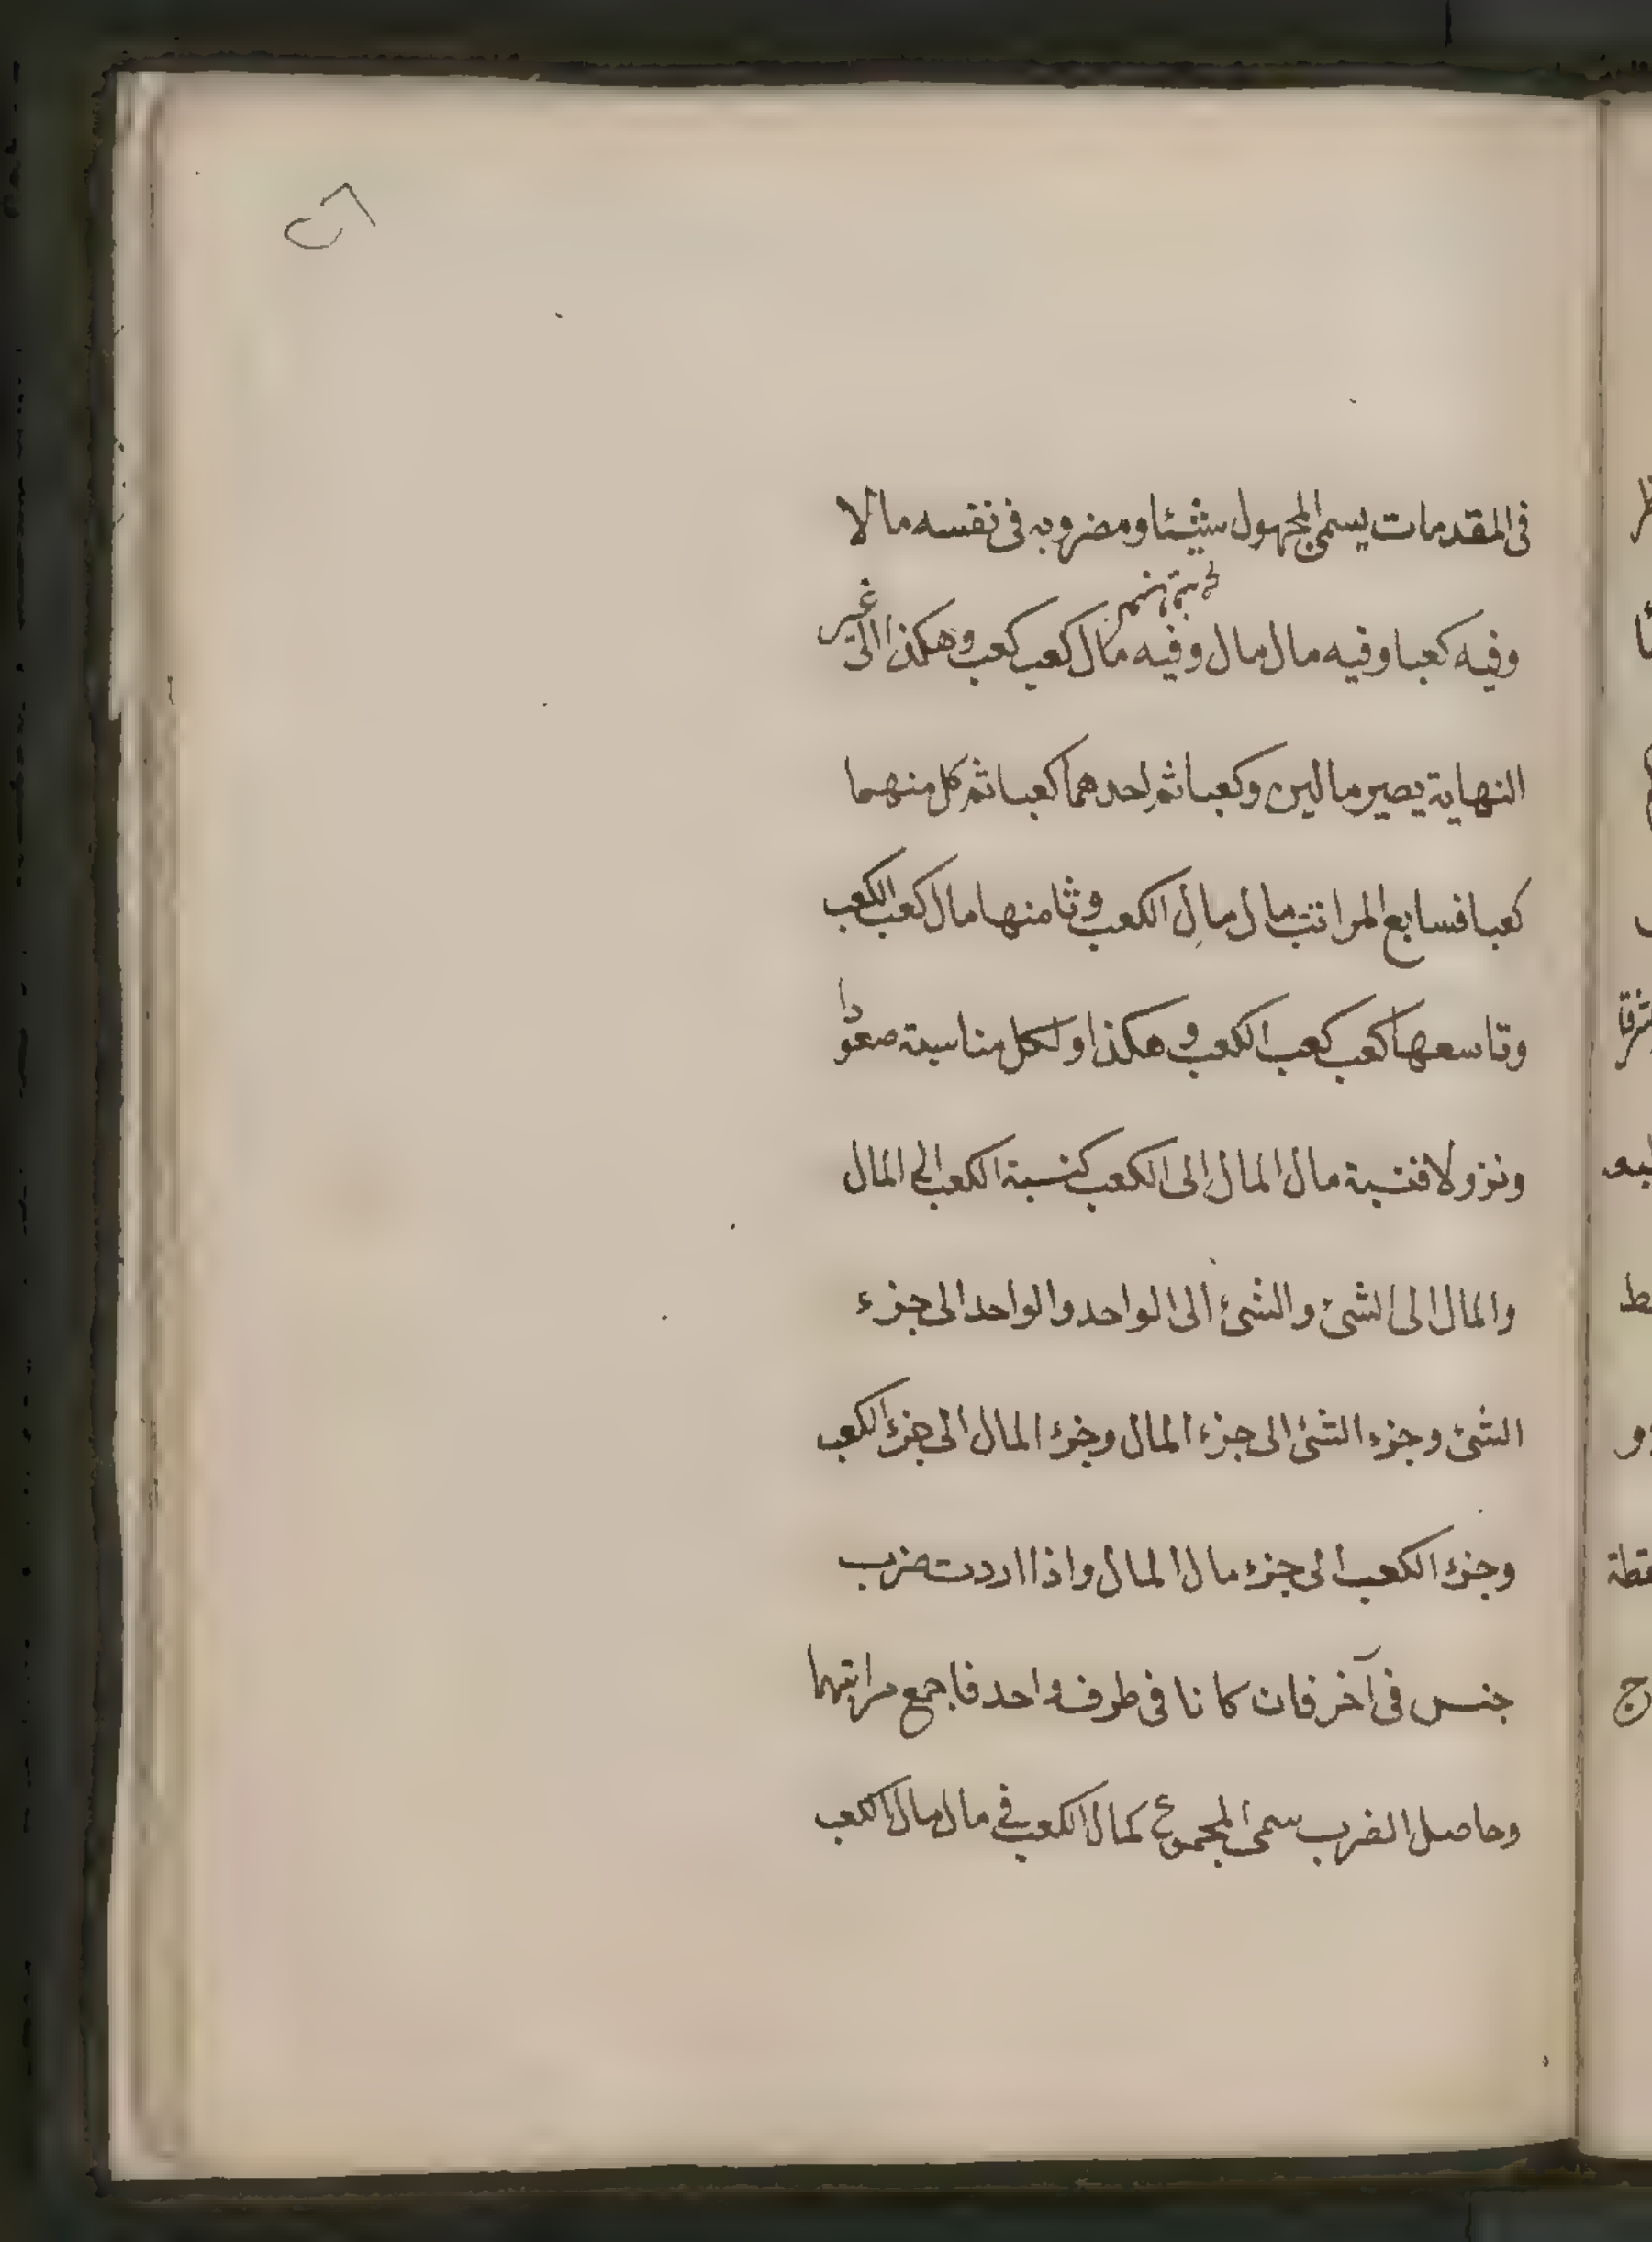 ٢٦
فى المقدمات يسمى المجهول شيئا ومضروبه فى نفسه مالا
وفيه كعبا وفيه مال مال وفيه مال كعب كعب وهكذا الى غير
النهاية يصير مالين وكعبا ثم احدهما كعبا ثم كل منهما
كعبا فسابع المراتب مال مال الكعب وثامنها مال كعب الكعب
وتاسعها كعب كعب الكعب وهكذا ولكل متناسبة صعودا
ونزولا فنسبة مال المال الى الكعب كنسبة الكعب الى المال
والمال الى الشئ والشئ الى الواحد والواحد الى جزء
الشئ وجزء الشئ الى جزء المال وجزء المال الى جزء الكعب
وجزء الكعب الى جزء مال المال واذا اردت ضرب
جنس فى آخر فان كانا فى طرف واحد فاجمع مراتبهما
وحاصل الضرب سمى المجموع كمال الكعب فى مال مال الكعب